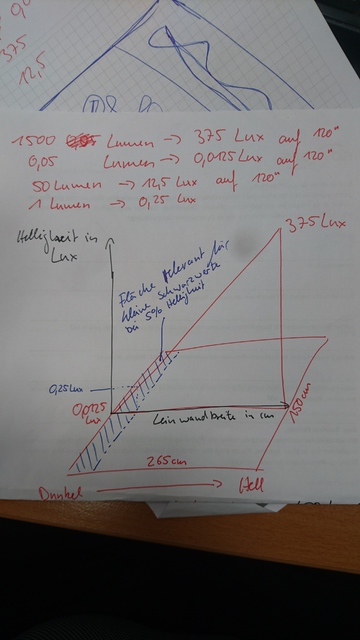 375
12,5
1500 Lumen → 375 Lux auf 120"
0,05 Lumen → 0,0125 Lux auf 120"
50 Lumen → 12,5 Lux auf 120"
1 Lumen → 0,25 Lux
Helligkeit in
Lux
375 Lux
Fläche relevant für
kleine Schwarzwerte
bei 5% Helligkeit
0,25 Lux
0,0125
Lux
Leinwandbreite in cm
150cm
265cm
Dunkel → Hell